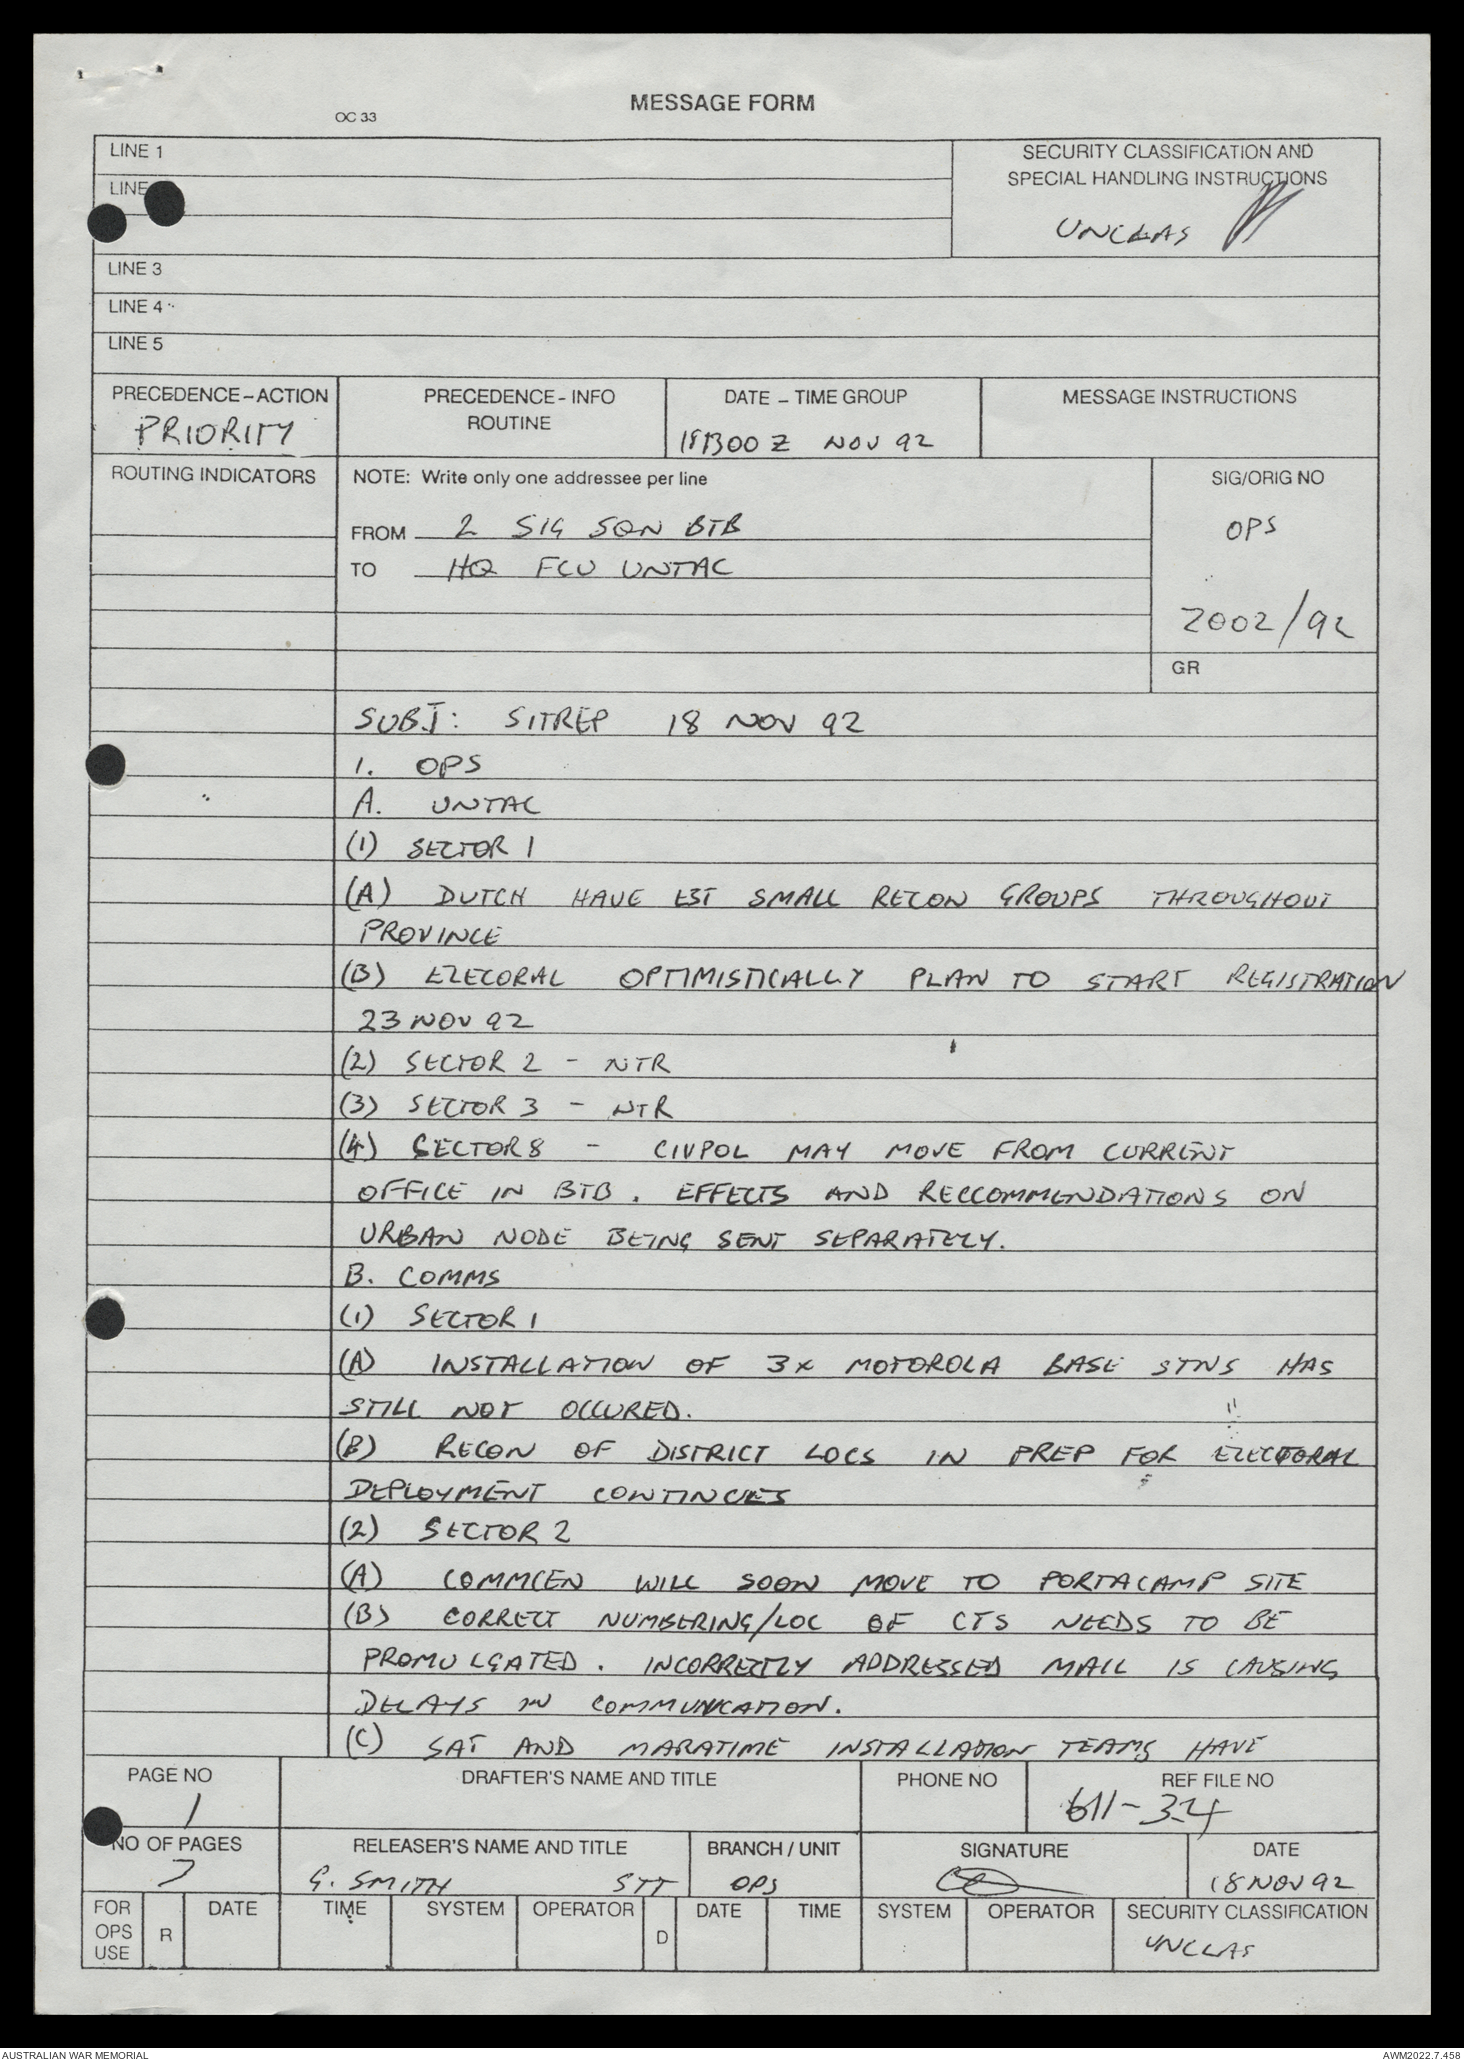 MESSAGE FORM
OC 33
LINE 1
SECURITY CLASSIFICATION AND
SPECIAL HANDLING INSTRUCTIONS
LINE
UNCLAS
LINE 3
LINE 4
LINE 5
PRECEDENCE - ACTION
PRIORITY
PRECEDENCE - INFO
ROUTINE
DATE - TIME GROUP
181300 Z NOV 92
MESSAGE INSTRUCTIONS
ROUTING INDICATORS
NOTE: Write only one addressee per line
SIG/ORIG NO
FROM 2 SIG SQN BTB
OPS
TO HQ FCU UNTAC
2002/92
GR
SUBJ: SITREP 18 NOV 92
1. OPS
A. UNTAC
(1) SECTOR 1
(A) DUTCH HAVE EST SMALL RECON GROUPS THROUGHOUT
PROVINCE
(B) ELECORAL OPTIMISTICALLY PLAN TO START REGISTRATION
23 NOV 92
(2) SECTOR 2 - NTR
(3) SECTOR 3 - NTR
(4) SECTOR 8 - CIVPOL MAY MOVE FROM CURRENT
OFFICE IN BTB. EFFECTS AND RECCOMMENDATIONS ON
URBAN NODE BEING SENT SEPARATELY.
B. COMMS
(1) SECTOR 1
(A) INSTALLATION OF 3x MOTOROLA BASE STNS HAS
STILL NOT OCCURED.
(B) RECON OF DISTRICT LOCS IN PREP FOR ELECTORAL
DEPLOYMENT CONTINUES
(2) SECTOR 2
(A) COMMCEN WILL SOON MOVE TO PORTACAMP SITE
(B) CORRECT NUMBERING/LOC OF CTS NEEDS TO BE
PROMULGATED. INCORRECTLY ADDRESSED MAIL IS CAUSING
DELAYS IN COMMUNICATION.
(C) SAT AND MARATIME INSTALLATION TEAMS HAVE
PAGE NO
1
DRAFTER'S NAME AND TITLE
PHONE NO
REF FILE NO
611-3-4
NO OF PAGES
RELEASER'S NAME AND TITLE
G. SMITH
BRANCH / UNIT
OPS
SIGNATURE
DATE
18 NOV 92
FOR OPS USE
R
DATE
TIME
SYSTEM
OPERATOR
D
DATE
TIME
SYSTEM
OPERATOR
SECURITY CLASSIFICATION
UNCLAS
AUSTRALIAN WAR MEMORIAL
AWM2022.7.458